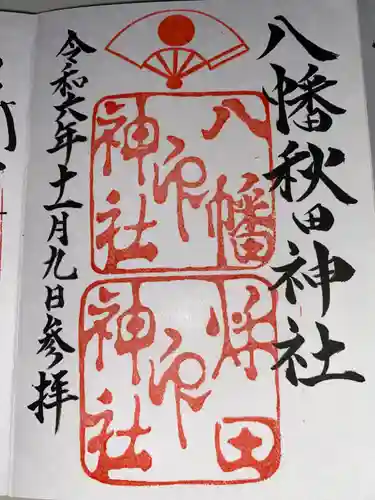 八幡秋田神社
八幡
神社印
秋田
神社印
令和六年十一月九日参拝